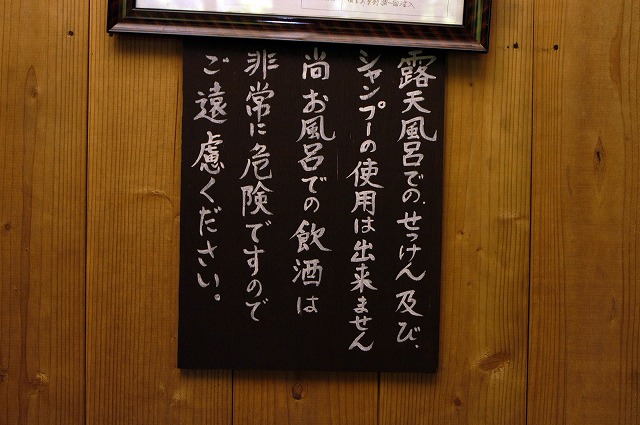 露天風呂での、せっけん及び、
シャンプーの使用は出来ません
尚お風呂での飲酒は
非常に危険ですので
ご遠慮ください。